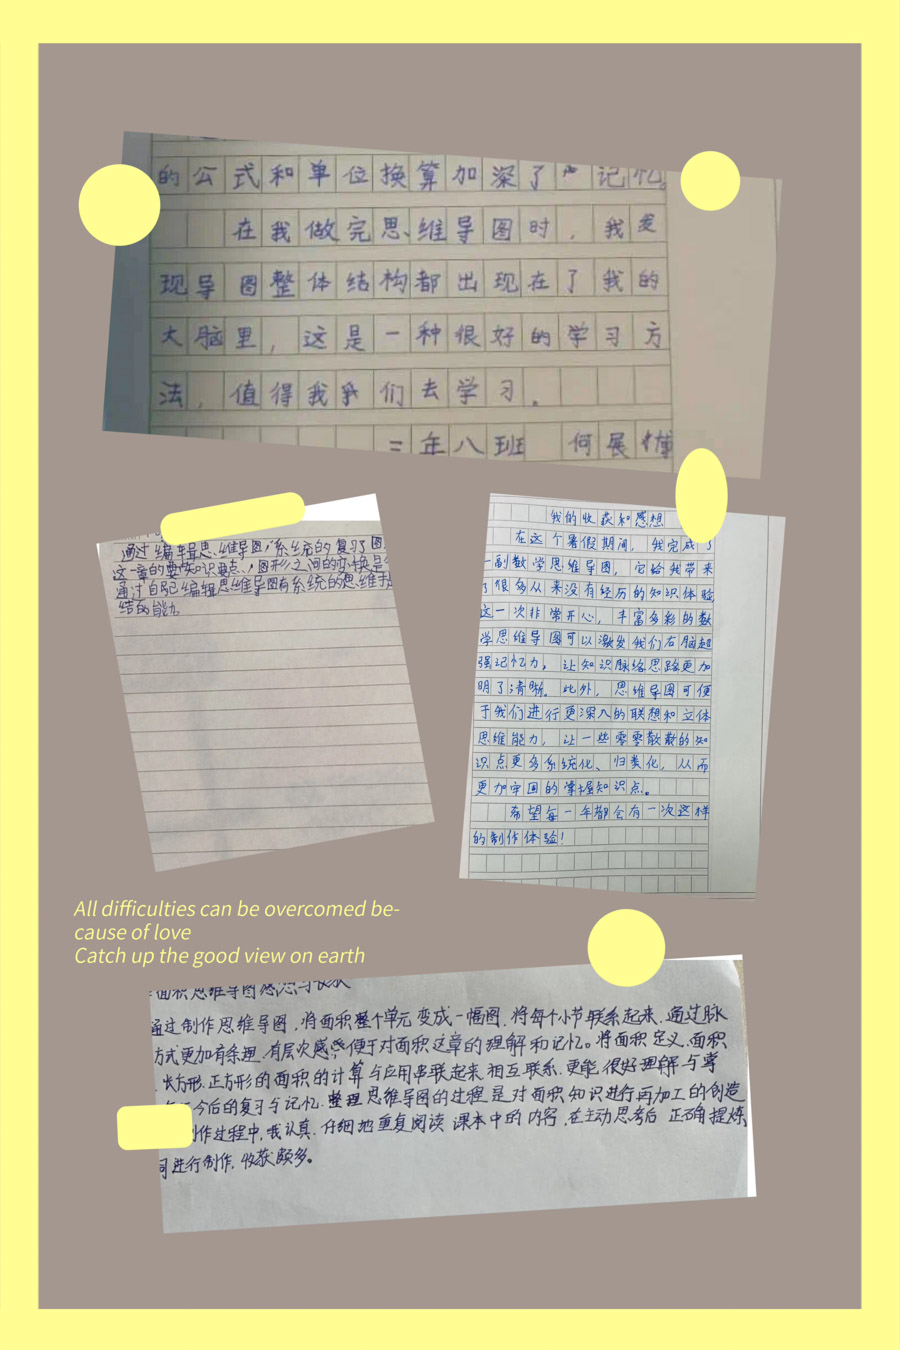 的公式和单位换算加深了记忆。
在我做完思维导图时，我发
现导图整体结构都出现在了我的
大脑里，这是一种很好的学习方
法，值得我们去学习。
三年八班 何展
通过编辑思维导图，系统的复习了图
这一章的要知识要点，图形之间的变换是
通过自己编辑思维导图有系统的思维
结的能力
我的收获和感想
在这个暑假期间，我完成了
一副数学思维导图，它给我带来
了很多从来没有经历的知识体验
这一次非常开心，丰富多彩的数
学思维导图可以激发我们右脑超
强记忆力，让知识脉络思路更加
明了清晰。此外，思维导图可便
于我们进行更深入的联想和立体
思维能力，让一些零零散散的知
识点更多系统化、归类化，从而
更加牢固的掌握知识点。
希望每一年都会有一次这样
的制作体验！
All difficulties can be overcomed be-
cause of love
Catch up the good view on earth
面积思维导图感想与收获
通过制作思维导图，将面积整个单元变成一幅图，将每个小节联系起来，通过脉
方式更加有条理，有层次感，便于对面积这章的理解和记忆。将面积定义，面积
长方形，正方形的面积的计算与应用串联起来，相互联系，更能很好理解与掌
今后的复习与记忆，整理思维导图的过程是对面积知识进行再加工的创造
制作过程中，我认真，仔细地重复阅读课本中的内容，在主动思考后正确提炼
词进行制作，收获颇多。